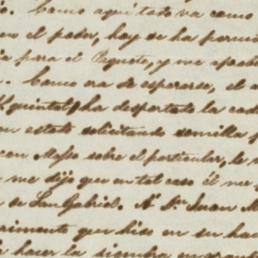 Como aquí todo va como
en el pedir, hoy se ha perm
a para el Piquete, y me aproba
. Como era de esperarse, el a
Kquintal, ha despertado la cod
n estado solicitando semilla p
con Masso sobre el particular, le
me dijo que en tal caso él me
n de San Gabriel. A Sr. Juan M
rimento que hizo en su hac
hacer la siembra